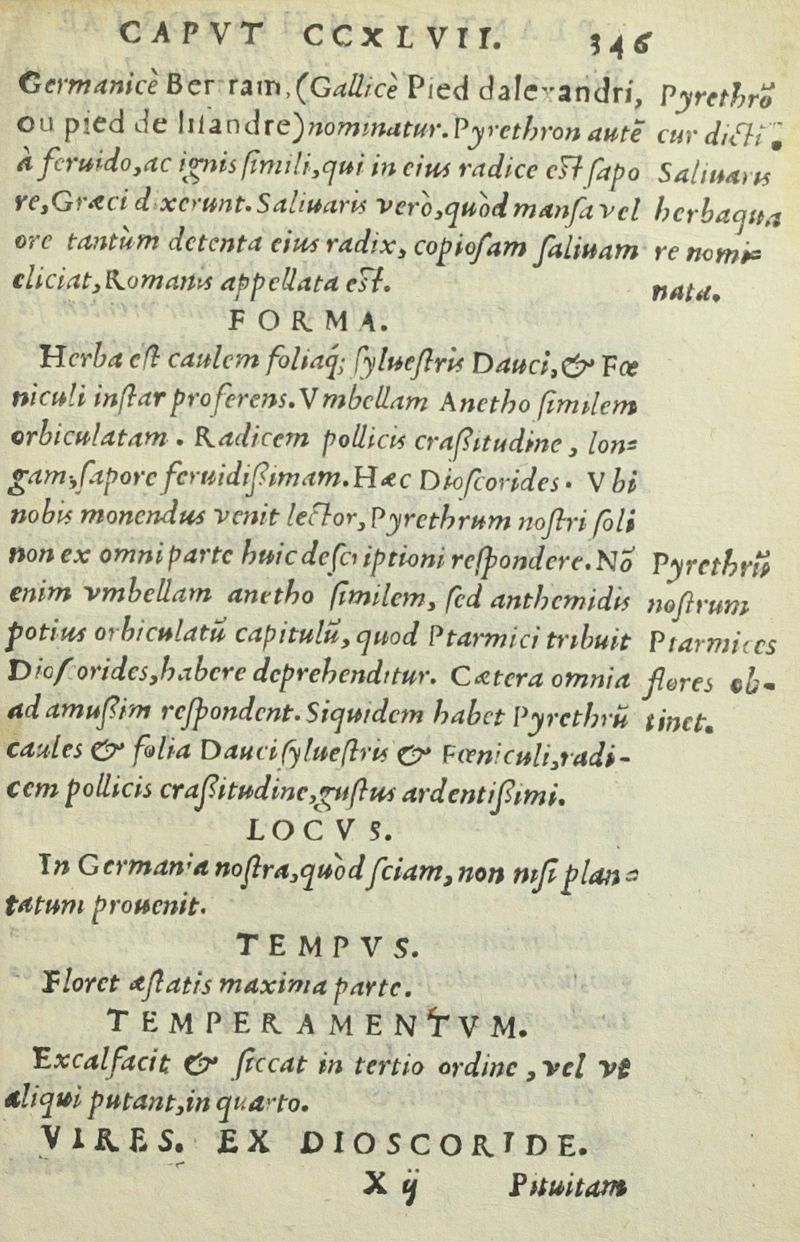 CAPVT CCXLVII. 346
Germanicè Bertram, (Gallicè Pied dalexandri,
ou pied de lilandre) nominatur. Pyrethron autē
à feruido, ac ignis ſimili, qui in eius radice eſt ſapo
re, Græci dixerunt. Saliuaris verò, quòd manſa vel
ore tantùm detenta eius radix, copioſam ſaliuam
eliciat, Romanis appellata eſt.
Pyrethrō
cur dicti.
Saliuaris
herba qua
re nomi=
nata.
FORMA.
Herba eſt caulem foliaq́; ſylueſtris Dauci, & Fœ
niculi inſtar proferens. Vmbellam Anetho ſimilem
orbiculatam. Radicem pollicis craßitudine, lon=
gam, ſapore feruidißimam. Hæc Dioſcorides. Vbi
nobis monendus venit lector, Pyrethrum noſtri ſoli
non ex omni parte huic deſcriptioni reſpondere. Nō
enim vmbellam anetho ſimilem, ſed anthemidis
potius orbiculatū capitulū, quod Ptarmici tribuit
Dioſcorides, habere deprehenditur. Cætera omnia
ad amußim reſpondent. Siquidem habet Pyrethrū
caules & folia Dauci ſylueſtris & Fœniculi, radi-
cem pollicis craßitudine, guſtus ardentißimi.
Pyrethrū
noſtrum
Ptarmices
flores ob-
tinet.
LOCVS.
In Germania noſtra, quòd ſciam, non niſi plan=
tatum prouenit.
TEMPVS.
Floret æſtatis maxima parte.
TEMPERAMENTVM.
Excalfacit & ſiccat in tertio ordine, vel vt
aliqui putant, in quarto.
VIRES. EX DIOSCORIDE.
X ij Pituitam